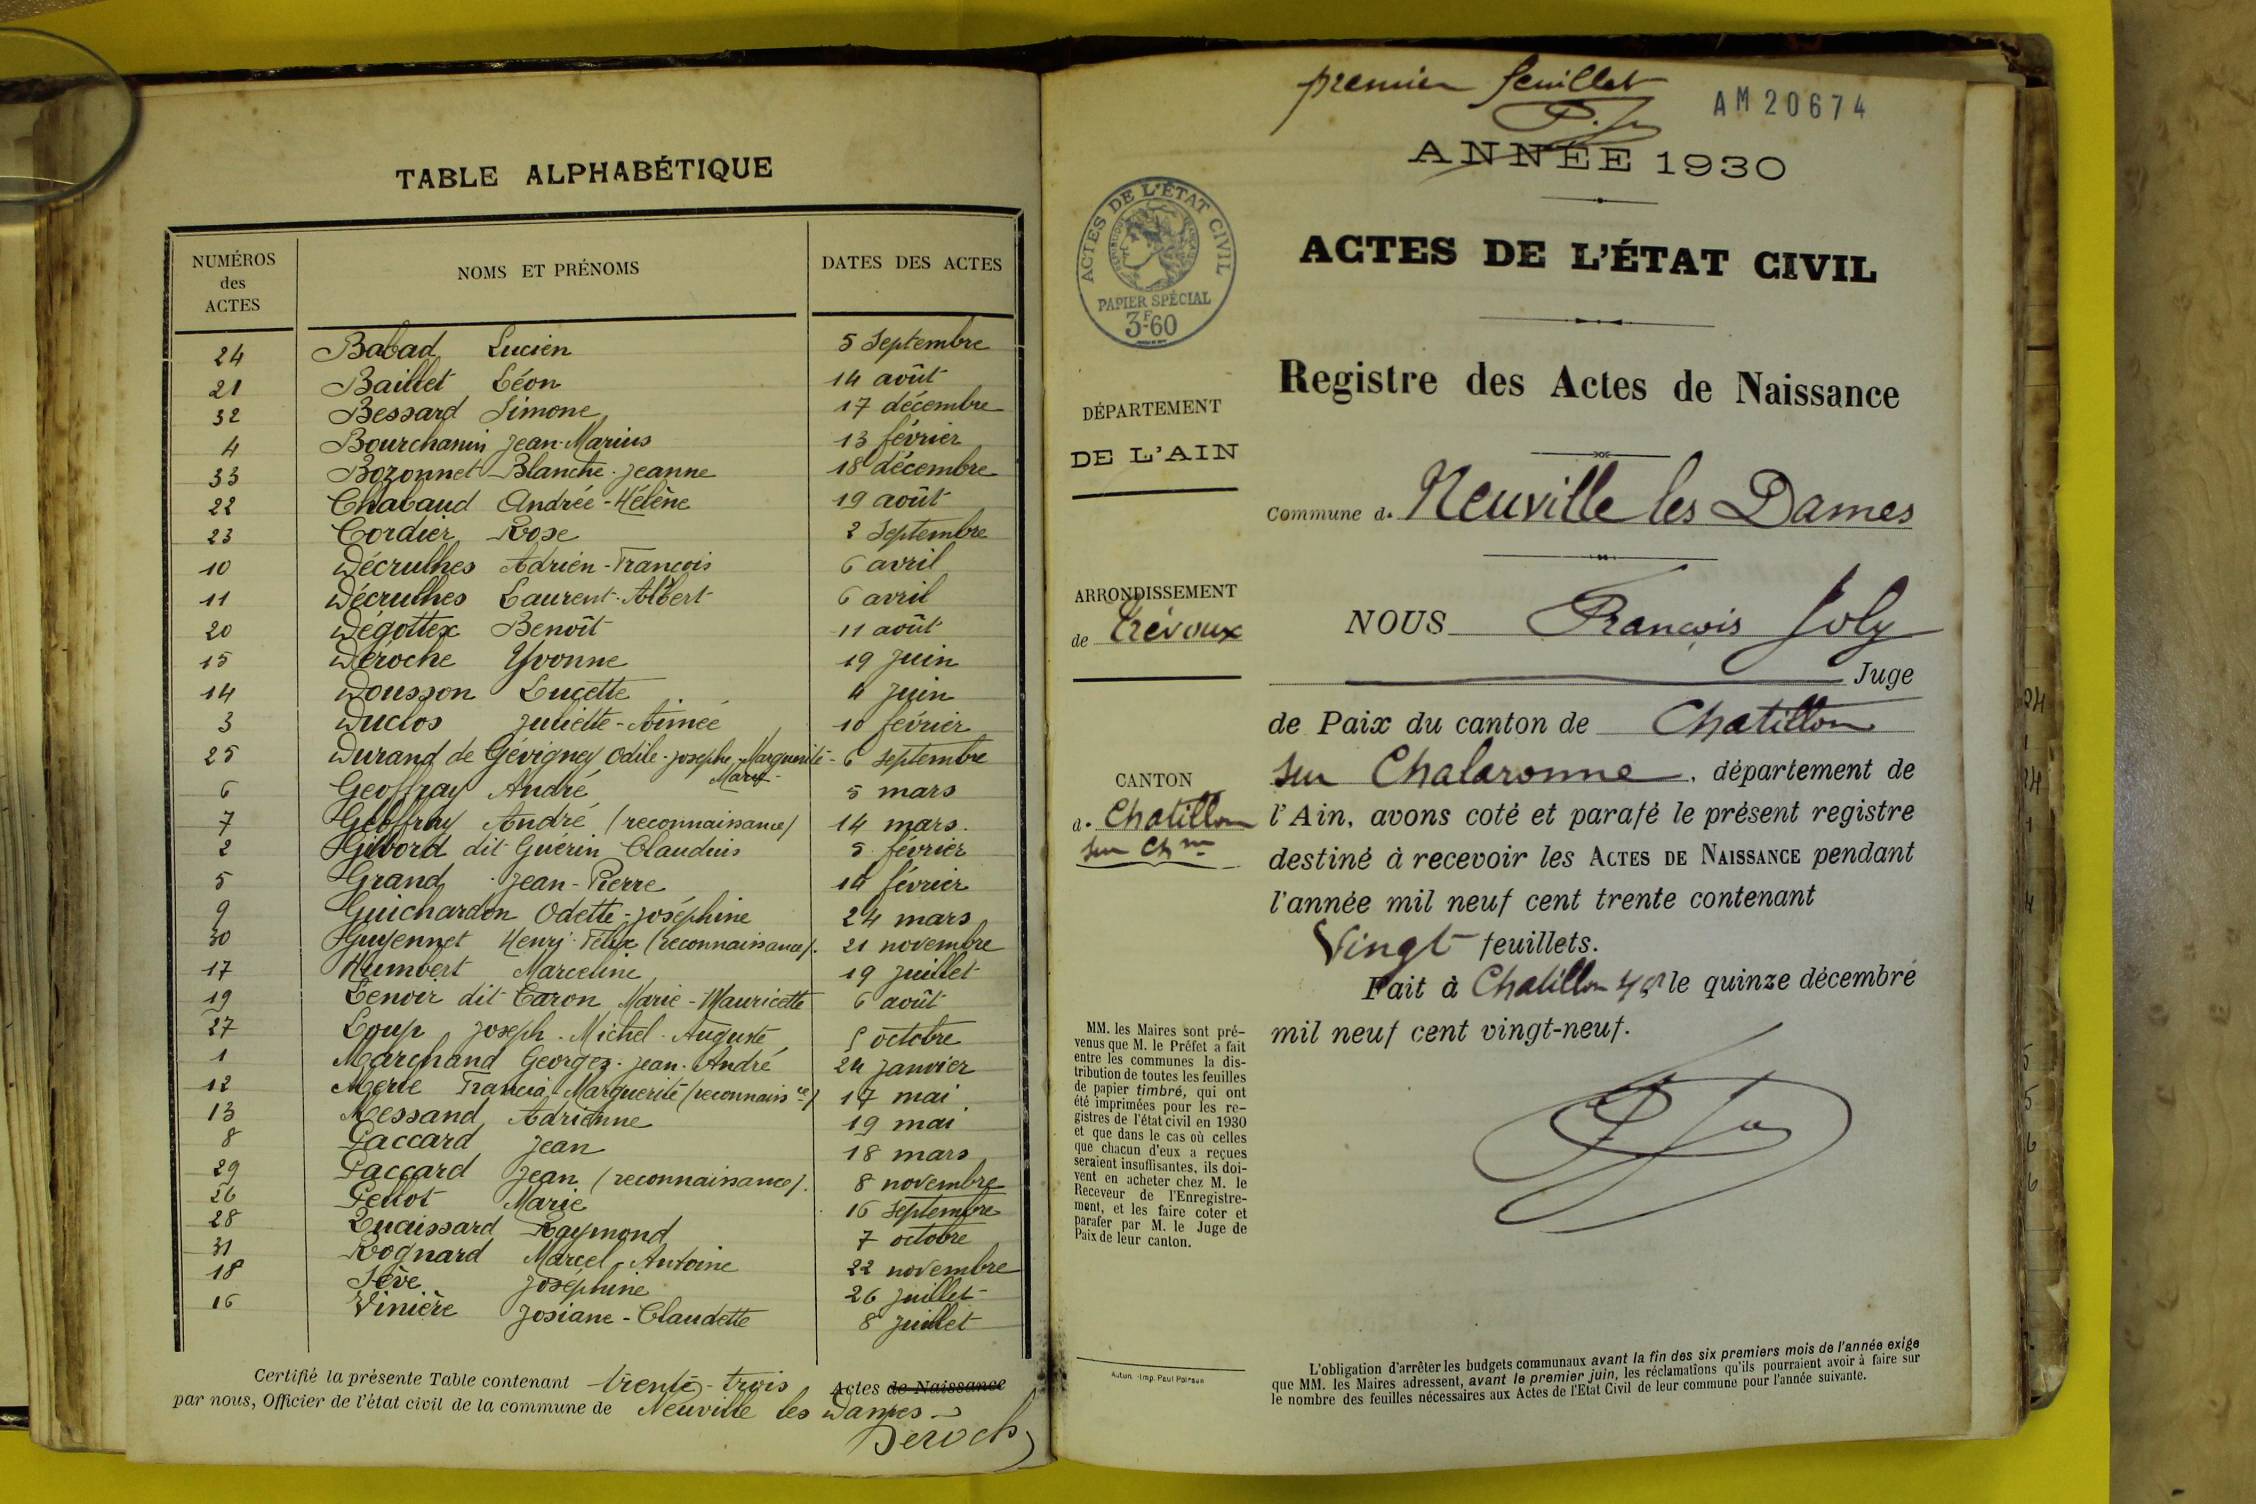 TABLE ALPHABÉTIQUE
NUMÉROS
des
ACTES
NOMS ET PRÉNOMS
DATES DES ACTES
24 Babad Lucien 5 Septembre
21 Baillet Léon 14 août
32 Bessard Simone 17 décembre
4 Bourchanin Jean-Marius 13 février
33 Bozonnet Blanche-Jeanne 18 décembre
22 Chabaud Andrée-Hélène 19 août
23 Cordier Rose 2 Septembre
10 Décrulhes Adrien-François 6 avril
11 Décrulhes Laurent-Albert 6 avril
20 Dégottex Benoît 11 août
15 Déroche Yvonne 19 Juin
14 Dousson Lucette 4 Juin
3 Duclos Juliette-Aimée 10 février
25 Durand de Gévigney Odile-Josephe-Marguerite- 6 septembre
Marie-
6 Geoffray André 5 mars
7 Geoffray André (reconnaissance) 14 mars.
2 Givord dit Guérin Claudius 5 février
5 Grand Jean-Pierre 14 février
9 Guichardon Odette-Joséphine 24 mars
30 Guyennet Henri-Félix (reconnaissance). 21 novembre
17 Humbert Marceline 19 juillet
19 Lenoir dit Caron Marie-Mauricette 6 août
27 Loup Joseph-Michel-Auguste 5 octobre
1 Marchand Georges-Jean-André 24 janvier
12 Merle Francia Marguerite (reconnaisce) 17 mai
13 Messand Adrienne 19 mai
8 Paccard Jean 18 mars
29 Paccard Jean (reconnaissance). 8 novembre
26 Pellot Marie 16 septembre
28 Quaissard Raymond 7 octobre
31 Rognard Marcel-Antoine 22 novembre
18 Sève Joséphine 26 juillet
16 Vinière Josiane-Claudette 8 juillet
Certifié la présente Table contenant trente-trois Actes de Naissance
par nous, Officier de l'état civil de la commune de Neuville les Dames
Deroch
premier feuillet
AM 20674
ANNÉE 1930
ACTES DE L'ÉTAT CIVIL
RÉPUBLIQUE FRANÇAISE
PAPIER SPÉCIAL
3F60
ACTES DE L'ÉTAT CIVIL
Registre des Actes de Naissance
DÉPARTEMENT
DE L'AIN
Commune d. Neuville les Dames
ARRONDISSEMENT
de Trévoux
NOUS François Joly
Juge
de Paix du canton de Chatillon
sur Chalaronne, département de
l'Ain, avons coté et parafé le présent registre
destiné à recevoir les ACTES DE NAISSANCE pendant
l'année mil neuf cent trente contenant
Vingt feuillets.
Fait à Chatillon le quinze décembre
mil neuf cent vingt-neuf.
CANTON
d. Chatillon
sur Chne
MM. les Maires sont pré-
venus que M. le Préfet a fait
entre les communes la dis-
tribution de toutes les feuilles
de papier timbré, qui ont
été imprimées pour les re-
gistres de l'état civil en 1930
et que dans le cas où celles
que chacun d'eux a reçues
seraient insuffisantes, ils doi-
vent en acheter chez M. le
Receveur de l'Enregistre-
ment, et les faire coter et
parafer par M. le Juge de
Paix de leur canton.
Autun. - Imp. Paul Poirson
L'obligation d'arrêter les budgets communaux avant la fin des six premiers mois de l'année exige
que MM. les Maires adressent, avant le premier juin, les réclamations qu'ils pourraient avoir à faire sur
le nombre des feuilles nécessaires aux Actes de l'Etat Civil de leur commune pour l'année suivante.